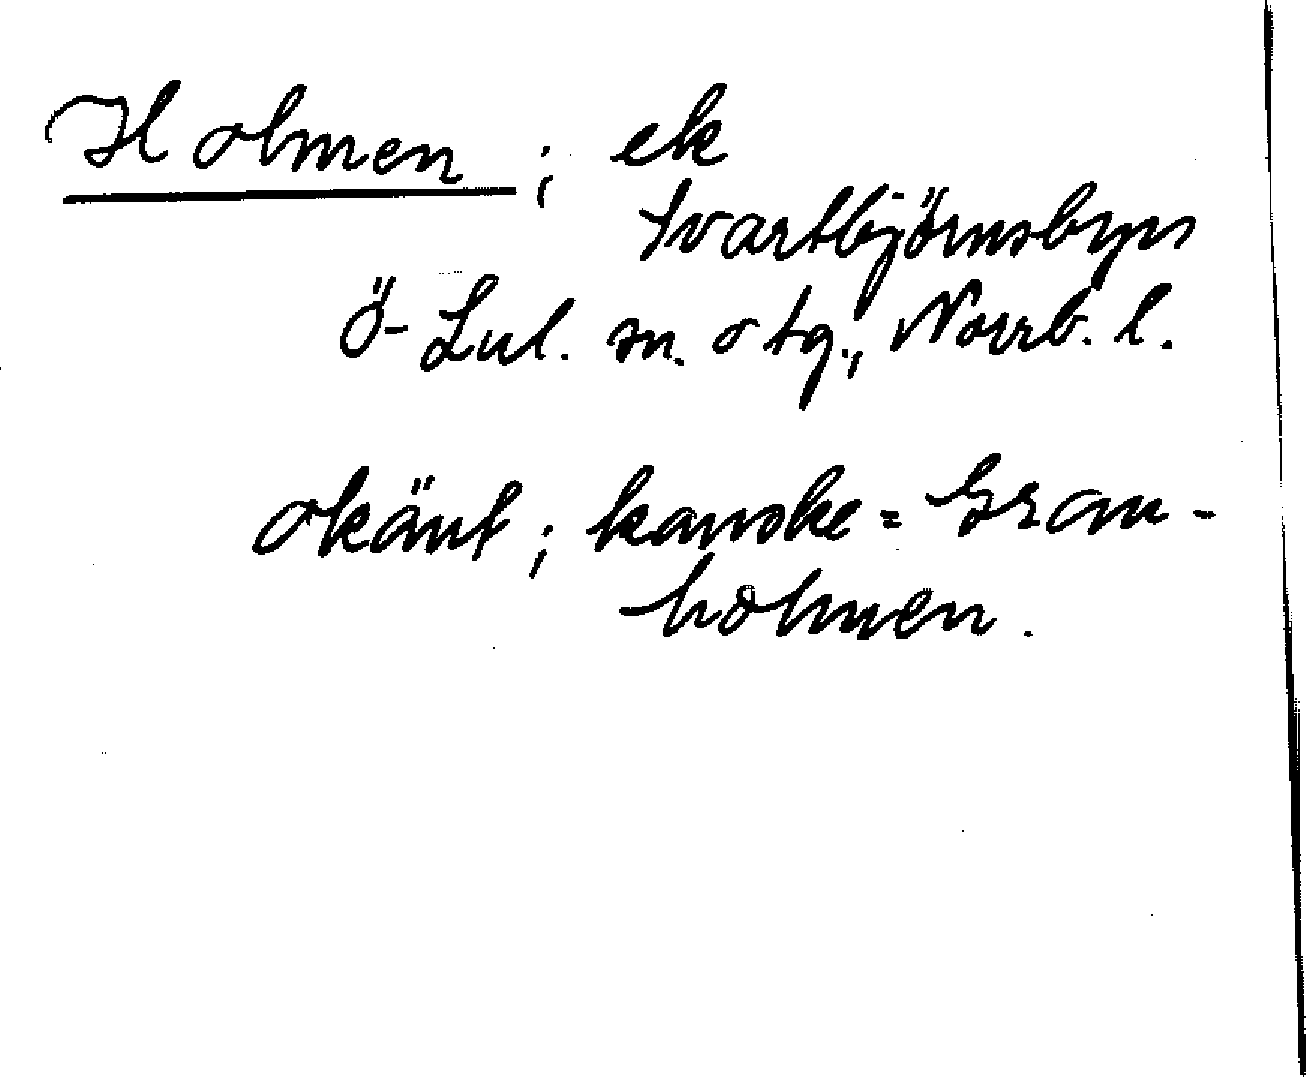 Holmen; ek
Svartbjörnsbyn
Ö-Lul. sn. o tg., Norrb. l.
okänt; kanske = Gran-
holmen.